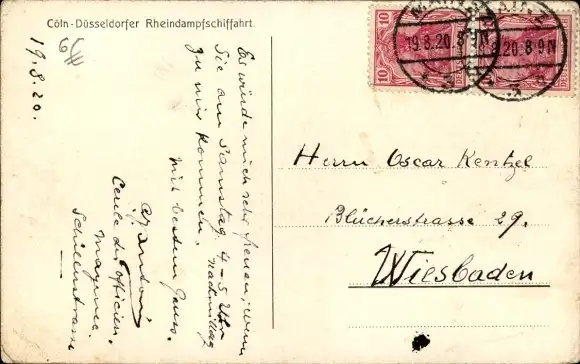 Cöln-Düsseldorfer Rheindampfschiffahrt.
19.8.20.
Es würde mich sehr freuen, wenn
Sie am Samstag 4-5 Uhr nachmittag
zu mir kommen.
Mit bestem Gruss.
Cercle des officiers.
Mayence.
Schillerstrasse
Herrn Oscar Kentzel
Blücherstrasse 29.
Wiesbaden
10 10
19.8.20. 8-9N
8.20. 8-9N